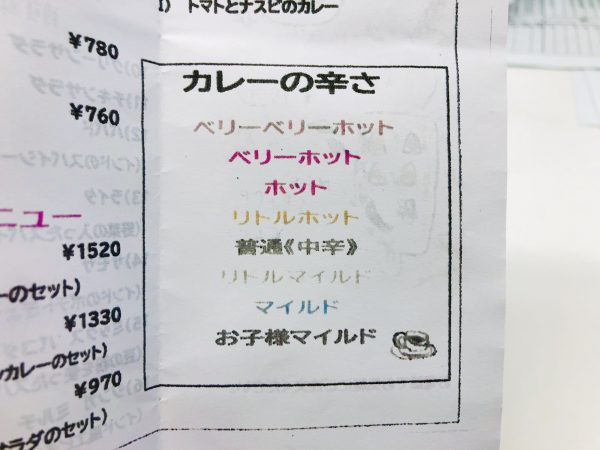 1) トマトとナスビのカレー
¥780
¥760
ニュー
¥1520
ーのセット)
¥1330
カレーのセット)
¥970
サラダのセット)
カレーの辛さ
ベリーベリーホット
ベリーホット
ホット
リトルホット
普通《中辛》
リトルマイルド
マイルド
お子様マイルド